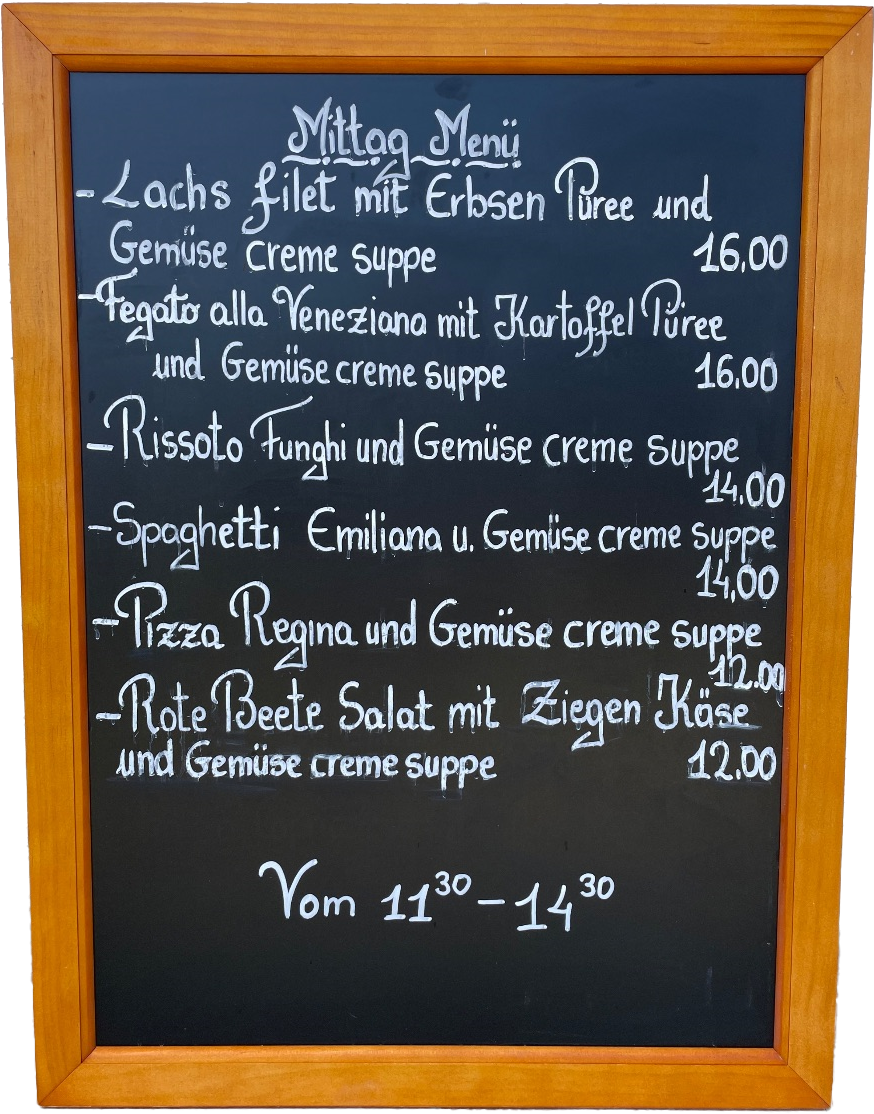 Mittag Menü
- Lachs filet mit Erbsen Püree und
Gemüse creme suppe 16.00
- Fegato alla Veneziana mit Kartoffel Püree
und Gemüse creme suppe 16.00
- Rissoto Funghi und Gemüse creme suppe
14.00
- Spaghetti Emiliana u. Gemüse creme suppe
14,00
- Pizza Regina und Gemüse creme suppe
12.00
- Rote Beete Salat mit Ziegen Käse
und Gemüse creme suppe 12.00
Vom 11³⁰ - 14³⁰